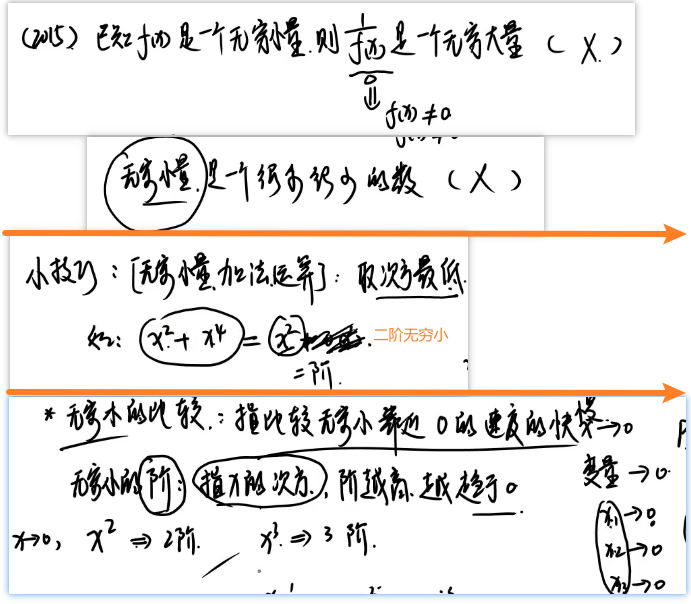 (2015) 已知f(x)是一个无穷小量.则1/f(x)是一个无穷大量 ( X. )
0
⇓
f(x)≠0
无穷小量是一个很小很小的数 ( X )
小技巧:[无穷小量加法运算]:取次方最低.
如: x²+x⁴ = x² 二阶无穷小
=阶.
* 无穷小的比较.:指比较无穷小靠近0的速度的快慢 →0
无穷小的阶:指x的次方,阶越高.越趋于0 变量→0
x→0, x² ⇒ 2阶. x³ ⇒ 3阶.
x₁→0
x₂→0
x₃→0